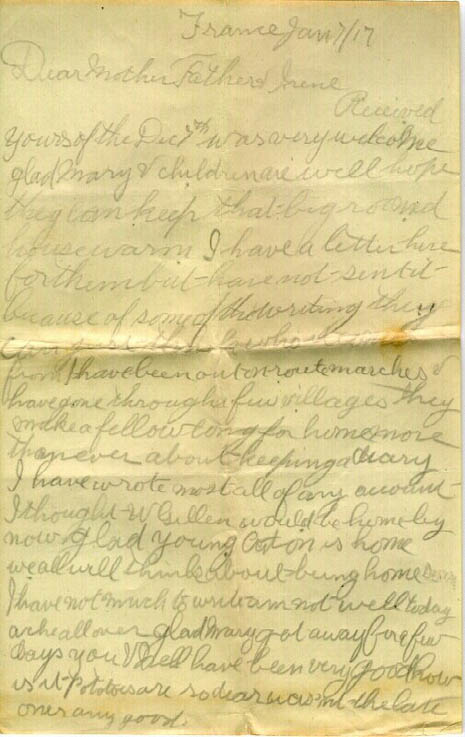 France Jan 7/17
Dear Mother Father & Irene
Received
yours of the Dec 7th was very welcome
glad Mary & children are well hope
they can keep that big roomed
house warm I have a letter here
for them but have not sent it
because of some of the writing they
can
from I have been out on route marches &
have gone through a few villages they
make a fellow long for home more
than ever about keeping a diary
I have wrote most all of any account
I thought W Cullen would be home by
now glad young is home
we all will think about being home
I have not much to write am not well today
ache all over glad Mary got away for a few
days you & Nell have been very good how
is it Potatoes are so dear wasnt the late
ones any good.